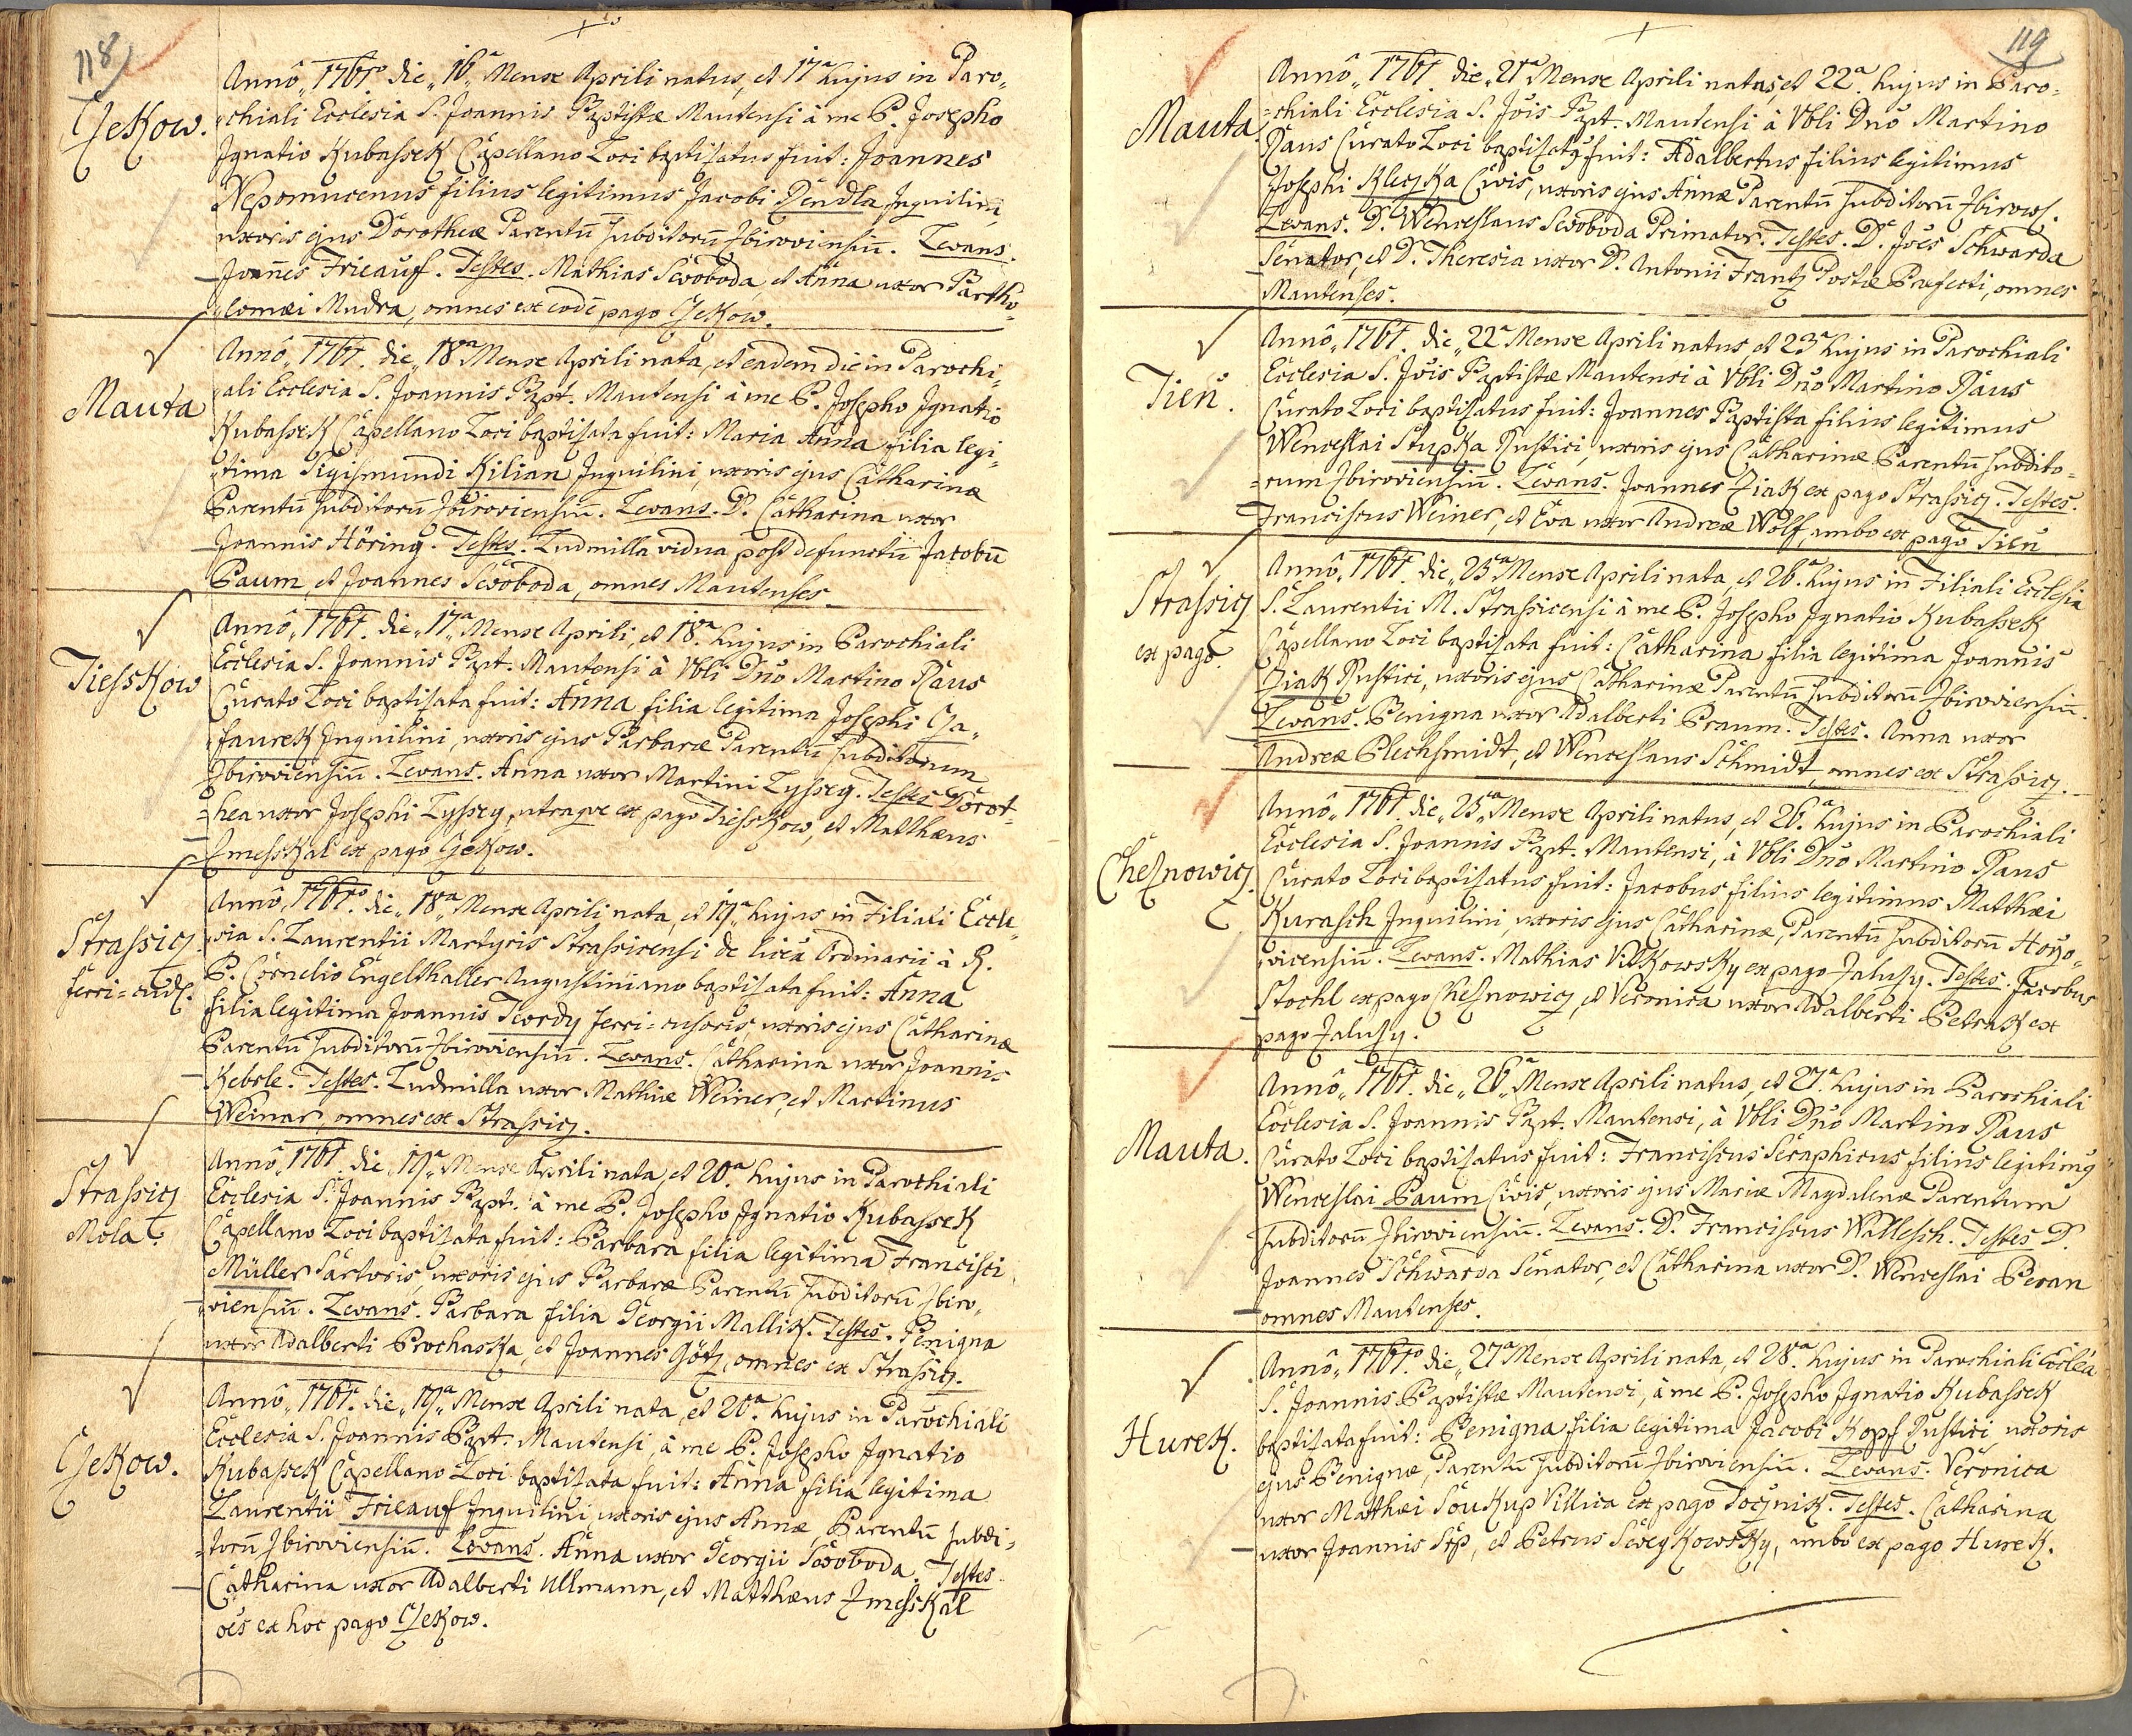 118
Czekow.
Annô„ 1761º die„ 16ª Mense Aprili natus, et 17ª hujus in Paro„
„chiali Ecclesia S. Joannis Baptistæ Mautensi â me P. Josepho
Jgnatio Kubassek Capellano Loci baptisatus fuit: Joannes
Nepomucenus filius legitimus Jacobi Rendla Jnquilini,
uxoris ejus Dorotheæ Parentū subditorū Zbiroviensiū. Levans.
Joannes Frieauf. Testes. Mathias Swoboda, et Anna uxor Bartho„
„lomæi Mudra, omnes ex eodē pago Czekow.
Mauta
Annô„ 1761. die„ 18ª Mense Aprili nata, et eadem die in Parochi„
„ali Ecclesia S. Joannis Bapt. Mautensi â me P. Josepho Jgnatio
Kubassek Capellano Loci baptisata fuit: Maria Anna filia legi„
„tima Sigismundi Kilian Jnquilini, uxoris ejus Catharinæ
Parentū subditorū Zbiroviensiū. Levans. D. Catharina uxor
Joannis Höring. Testes. Ludmilla vidua post defunctū Jacobū
Baum, et Joannes Swoboda, omnes Mautenses.
Tiessкow
Annô„ 1761. die„ 17ª Mense Aprili, et 18ª hujus in Parochiali
Ecclesia S. Joannis Bapt. Mautensi â Vbli Dnō Martino Raus
Curato Loci baptisata fuit: Anna filia legitima Josephi Za„
„faurek Jnquilini, uxoris ejus Barbaræ Parentū subditorum
Zbiroviensiū. Levans. Anna uxor Martini Lyssey. Testes Dorot„
„hea uxor Josephi Lyssey, utraque ex pago Tiesskow, et Matthæus
Zmesskal ex pago Czekow.
Strassicz
ferri=cud.
Annô„ 1761º die„ 18ª Mense Aprili nata, et 19ª hujus in Filiali Eccle„
„sia S. Laurentii Martyris Strassicensi de licā Ordinarii â R.
P. Cornelio Engelthaller Augustiniano baptisata fuit: Anna
filia legitima Joannis Twrdy ferri=cusoris, uxoris ejus Catharinæ
Parentū subditorū Zbiroviensiū. Levans. Catharina uxor Joannis
Kebrle. Testes. Ludmilla uxor Mathiæ Weiner, et Martinus
Weinar, omnes ex Strassicz.
Strassicz
Mola.
Annô„ 1761. die„ 19ª Mense Aprili nata, et 20ª hujus in Parochiali
Ecclesia S. Joannis Bapt. â me P. Josepho Jgnatio Kubassek
Capellano Loci baptisata fuit: Barbara filia legitima Francisci
Müller Sartoris, uxoris ejus Barbaræ Parentū subditorū Zbiro„
„viensiū. Levans. Barbara filia Georgii Mallik. Testes. Benigna
uxor Adalberti Prochaska, et Joannes Götz, omnes ex Strassicz.
Czekow.
Annô„ 1761. die„ 19ª Mense Aprili nata, et 20ª hujus in Parochiali
Ecclesia S. Joannis Bapt. Mautensi, â me P. Josepho Jgnatio
Kubassek Capellano Loci baptisata fuit: Anna filia legitima
Laurentii Frieauf Jnquilini, uxoris ejus Annæ, Parentū subdi„
„torū Zbiroviensiū. Levans. Anna uxor Georgii Swoboda. Testes.
Catharina uxor Adalberti Ullmann, et Matthæus Zmesskal
oēs ex hoc pago Czekow.
119
Mauta.
Annô„ 1761. die„ 21ª Mense Aprili natus, et 22ª hujus in Paro„
„chiali Ecclesia S. Jōis Bapt. Mautensi â Vbli Dnō Martino
Raus Curato Loci baptisatus fuit: Adalbertus filius legitimus
Josephi Kleczka Civis, uxoris ejus Annæ Parentū subditorū Zbirows.
Levans. D. Wenceslaus Swoboda Primator. Testes. D. Joēs Schwarda
Senator, et D. Theresia uxor D. Antonii Frantz Postæ Præfecti, omnes
Mautenses.
Tien.
Annô„ 1761. die„ 22ª Mense Aprili natus, et 23ª hujus in Parochiali
Ecclesia S. Jōis Baptistæ Mautensi â Vbli Dnō Martino Raus
Curato Loci baptisatus fuit: Joannes Baptista filius legitimus
Wenceslai Stupka Rustici, uxoris ejus Catharinæ Parentū subdito„
„rum Zbiroviensiū. Levans. Joannes Ziak ex pago Strassicz. Testes.
Franciscus Weiner, et Eva uxor Andreæ Wolf, ambo ex pago Tien
Strassicz
ex pago.
Annô„ 1761. die„ 25ª Mense Aprili nata, et 26ª hujus in Filiali Ecclesia
S. Laurentii M. Strassicensi â me P. Josepho Jgnatio Kubassek
Capellano Loci baptisata fuit: Catharina filia legitima Joannis
Ziak Rustici, uxoris ejus Catharinæ Parentū subditorū Zbiroviensiū.
Levans. Benigna uxor Adalberti Braum. Testes. Anna uxor
Andreæ Blechschmidt, et Wenceslaus Schmidt, omnes ex Strassicz.
Cheznowicz.
Annô„ 1761. die„ 25ª Mense Aprili natus, et 26ª hujus in Parochiali
Ecclesia S. Joannis Bapt. Mautensi, â Vbli Dnō Martino Raus
Curato Loci baptisatus fuit: Jacobus filius legitimus Matthæi
Kurasch Jnquilini, uxoris ejus Catharinæ, Parentū subditorū Horzo„
„vicensiū. Levans. Mathias Vitkowsky ex pago Zaluzy. Testes. Jacobus
Stochl ex pago Cheznowicz, et Veronica uxor Adalberti Petrak ex
pago Zaluzy.
Mauta.
Annô„ 1761. die„ 26ª Mense Aprili natus, et 27ª hujus in Parochiali
Ecclesia S. Joannis Bapt. Mautensi, â Vbli Dnō Martino Raus
Curato Loci baptisatus fuit: Franciscus Seraphicus filius legitimus
Wenceslai Baum Civis, uxoris ejus Mariæ Magdalenæ Parentum
subditorū Zbiroviensiū. Levans. D. Franciscus Wallesch. Testes D.
Joannes Schwarda Senator, et Catharina uxor D. Wenceslai Beran
omnes Mautenses.
Hurek.
Annô„ 1761º die„ 27ª Mense Aprili nata, et 28ª hujus in Parochiali Ecclēa
S. Joannis Baptistæ Mautensi, â me P. Josepho Jgnatio Kubassek
baptisata fuit: Benigna filia legitima Jacobi Kopf Rustici uxoris
ejus Benignæ, Parentū subditorū Zbiroviensiū. Levans. Veronica
uxor Matthæi Soukup Villica ex pago Toczník. Testes. Catharina
uxor Joannis Stp, et Petrus Sweykowsky, ambo ex pago Hurek.